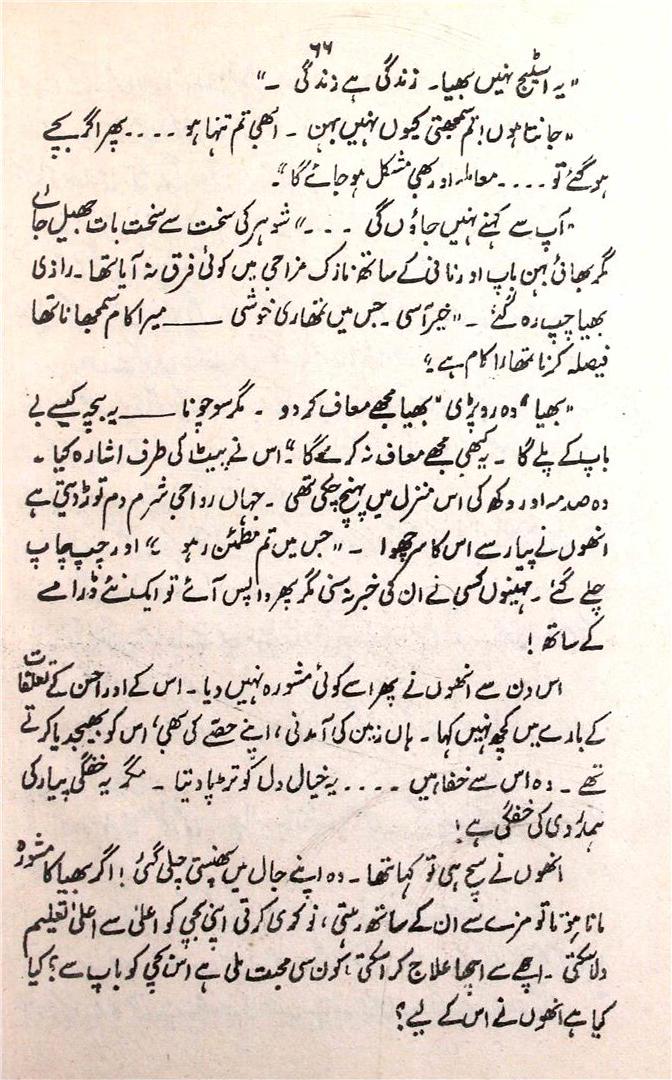 ۶۶
"یہ اسٹیج نہیں بھیا۔ زندگی ہے زندگی ۔"
"جانتا ہوں! تم سمجھتی کیوں نہیں بہن ۔ ابھی تم تنہا ہو ۔۔۔۔ پھر اگر بچے
ہو گئے تو ۔۔۔۔ معاملہ اور بھی مشکل ہو جائے گا"۔
"آپ سے کہنے نہیں جاؤں گی ۔۔۔" شوہر کی سخت سے سخت بات جھیل جائے
مگر بھائی بہن باپ اور نانی کے ساتھ نازک مزاجی میں کوئی فرق نہ آیا تھا۔ رازی
بھیا چپ رہ گئے ۔ "خیر آسی ۔ جس میں تمھاری خوشی ——— میرا کام سمجھانا تھا
فیصلہ کرنا تمھارا کام ہے"
"بھیا" وہ رو پڑی "بھیا مجھے معاف کر دو ۔ مگر سوچو نا ——— یہ بچہ کیسے بے
باپ کے پلے گا ۔ یہ کبھی مجھے معاف نہ کرے گا"۔ اس نے پیٹ کی طرف اشارہ کیا ۔
وہ صدمہ اور دکھ کی اس منزل میں پہنچ چکی تھی ۔ جہاں رواجی شرم دم توڑ دیتی ہے
انھوں نے پیار سے اس کا سر چھوا ۔ "جس میں تم مطمئن رہو" اور چپ چاپ
چلے گئے ۔ مہینوں کسی نے ان کی خبر نہ سنی مگر پھر واپس آئے تو ایک نئے ڈرامے
کے ساتھ !
اس دن سے انھوں نے پھر اسے کوئی مشورہ نہیں دیا ۔ اس کے اور احسن کے تعلقات
کے بارے میں کچھ نہیں کہا ۔ ہاں زمین کی آمدنی، اپنے حصے کی بھی، اس کو بھیجدیا کرتے
تھے ۔ وہ اس سے خفا ہیں ۔۔۔۔ یہ خیال دل کو تڑپا دیتا ۔ مگر یہ خفگی پیار کی
ہمدردی کی خفگی ہے !
انھوں نے سچ ہی تو کہا تھا ۔ وہ اپنے جال میں پھنستی چلی گئی ! اگر بھیا کا مشورہ
مانا ہوتا تو مزے سے ان کے ساتھ رہتی، نوکری کرتی اپنی بچی کو اعلیٰ سے اعلیٰ تعلیم
دلا سکتی ۔ اچھے سے اچھا علاج کرا سکتی، کون سی محبت ملی ہے اس بچی کو باپ سے؟ کیا
کیا ہے انھوں نے اس کے لیے؟